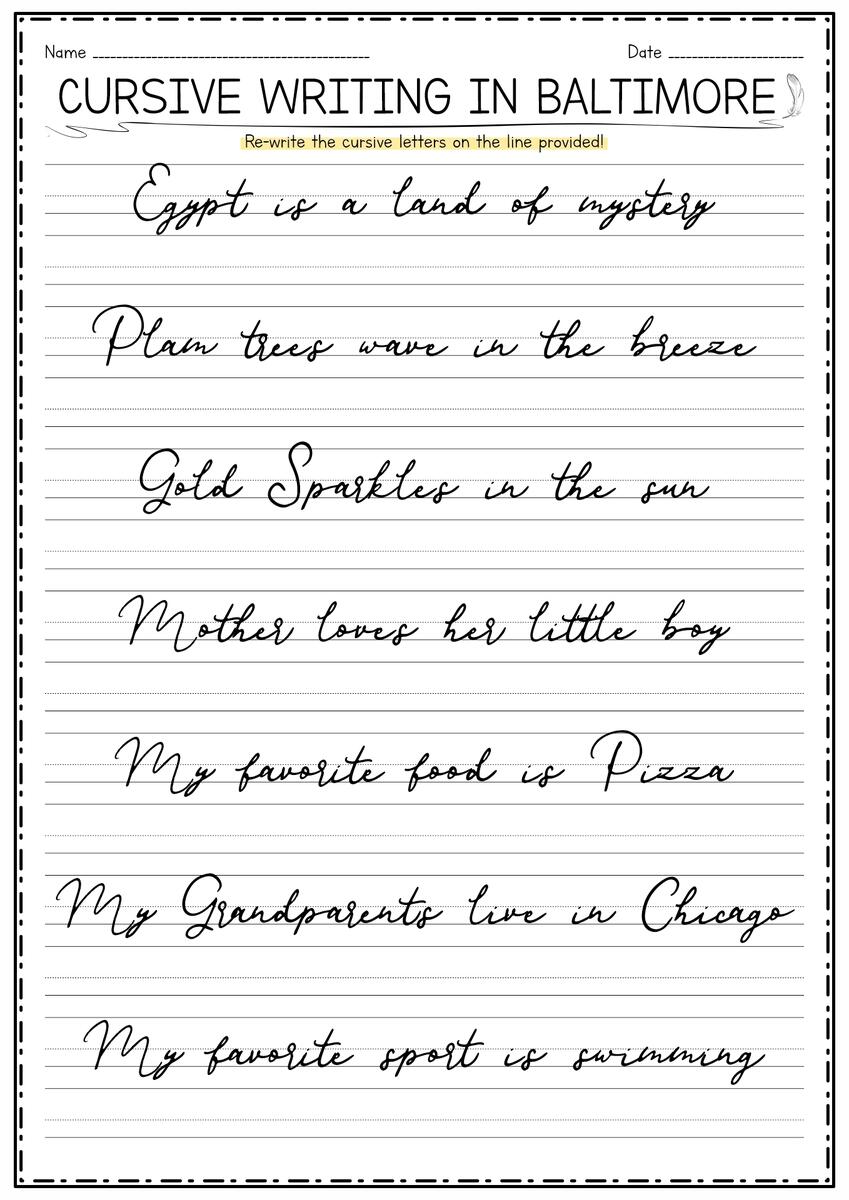 Name
Date
CURSIVE WRITING IN BALTIMORE
Re-write the cursive letters on the line provided!
Egypt is a land of mystery
Plam trees wave in the breeze
Gold Sparkles in the sun
Mother loves her little boy
My favorite food is Pizza
My Grandparents live in Chicago
My favorite sport is swimming